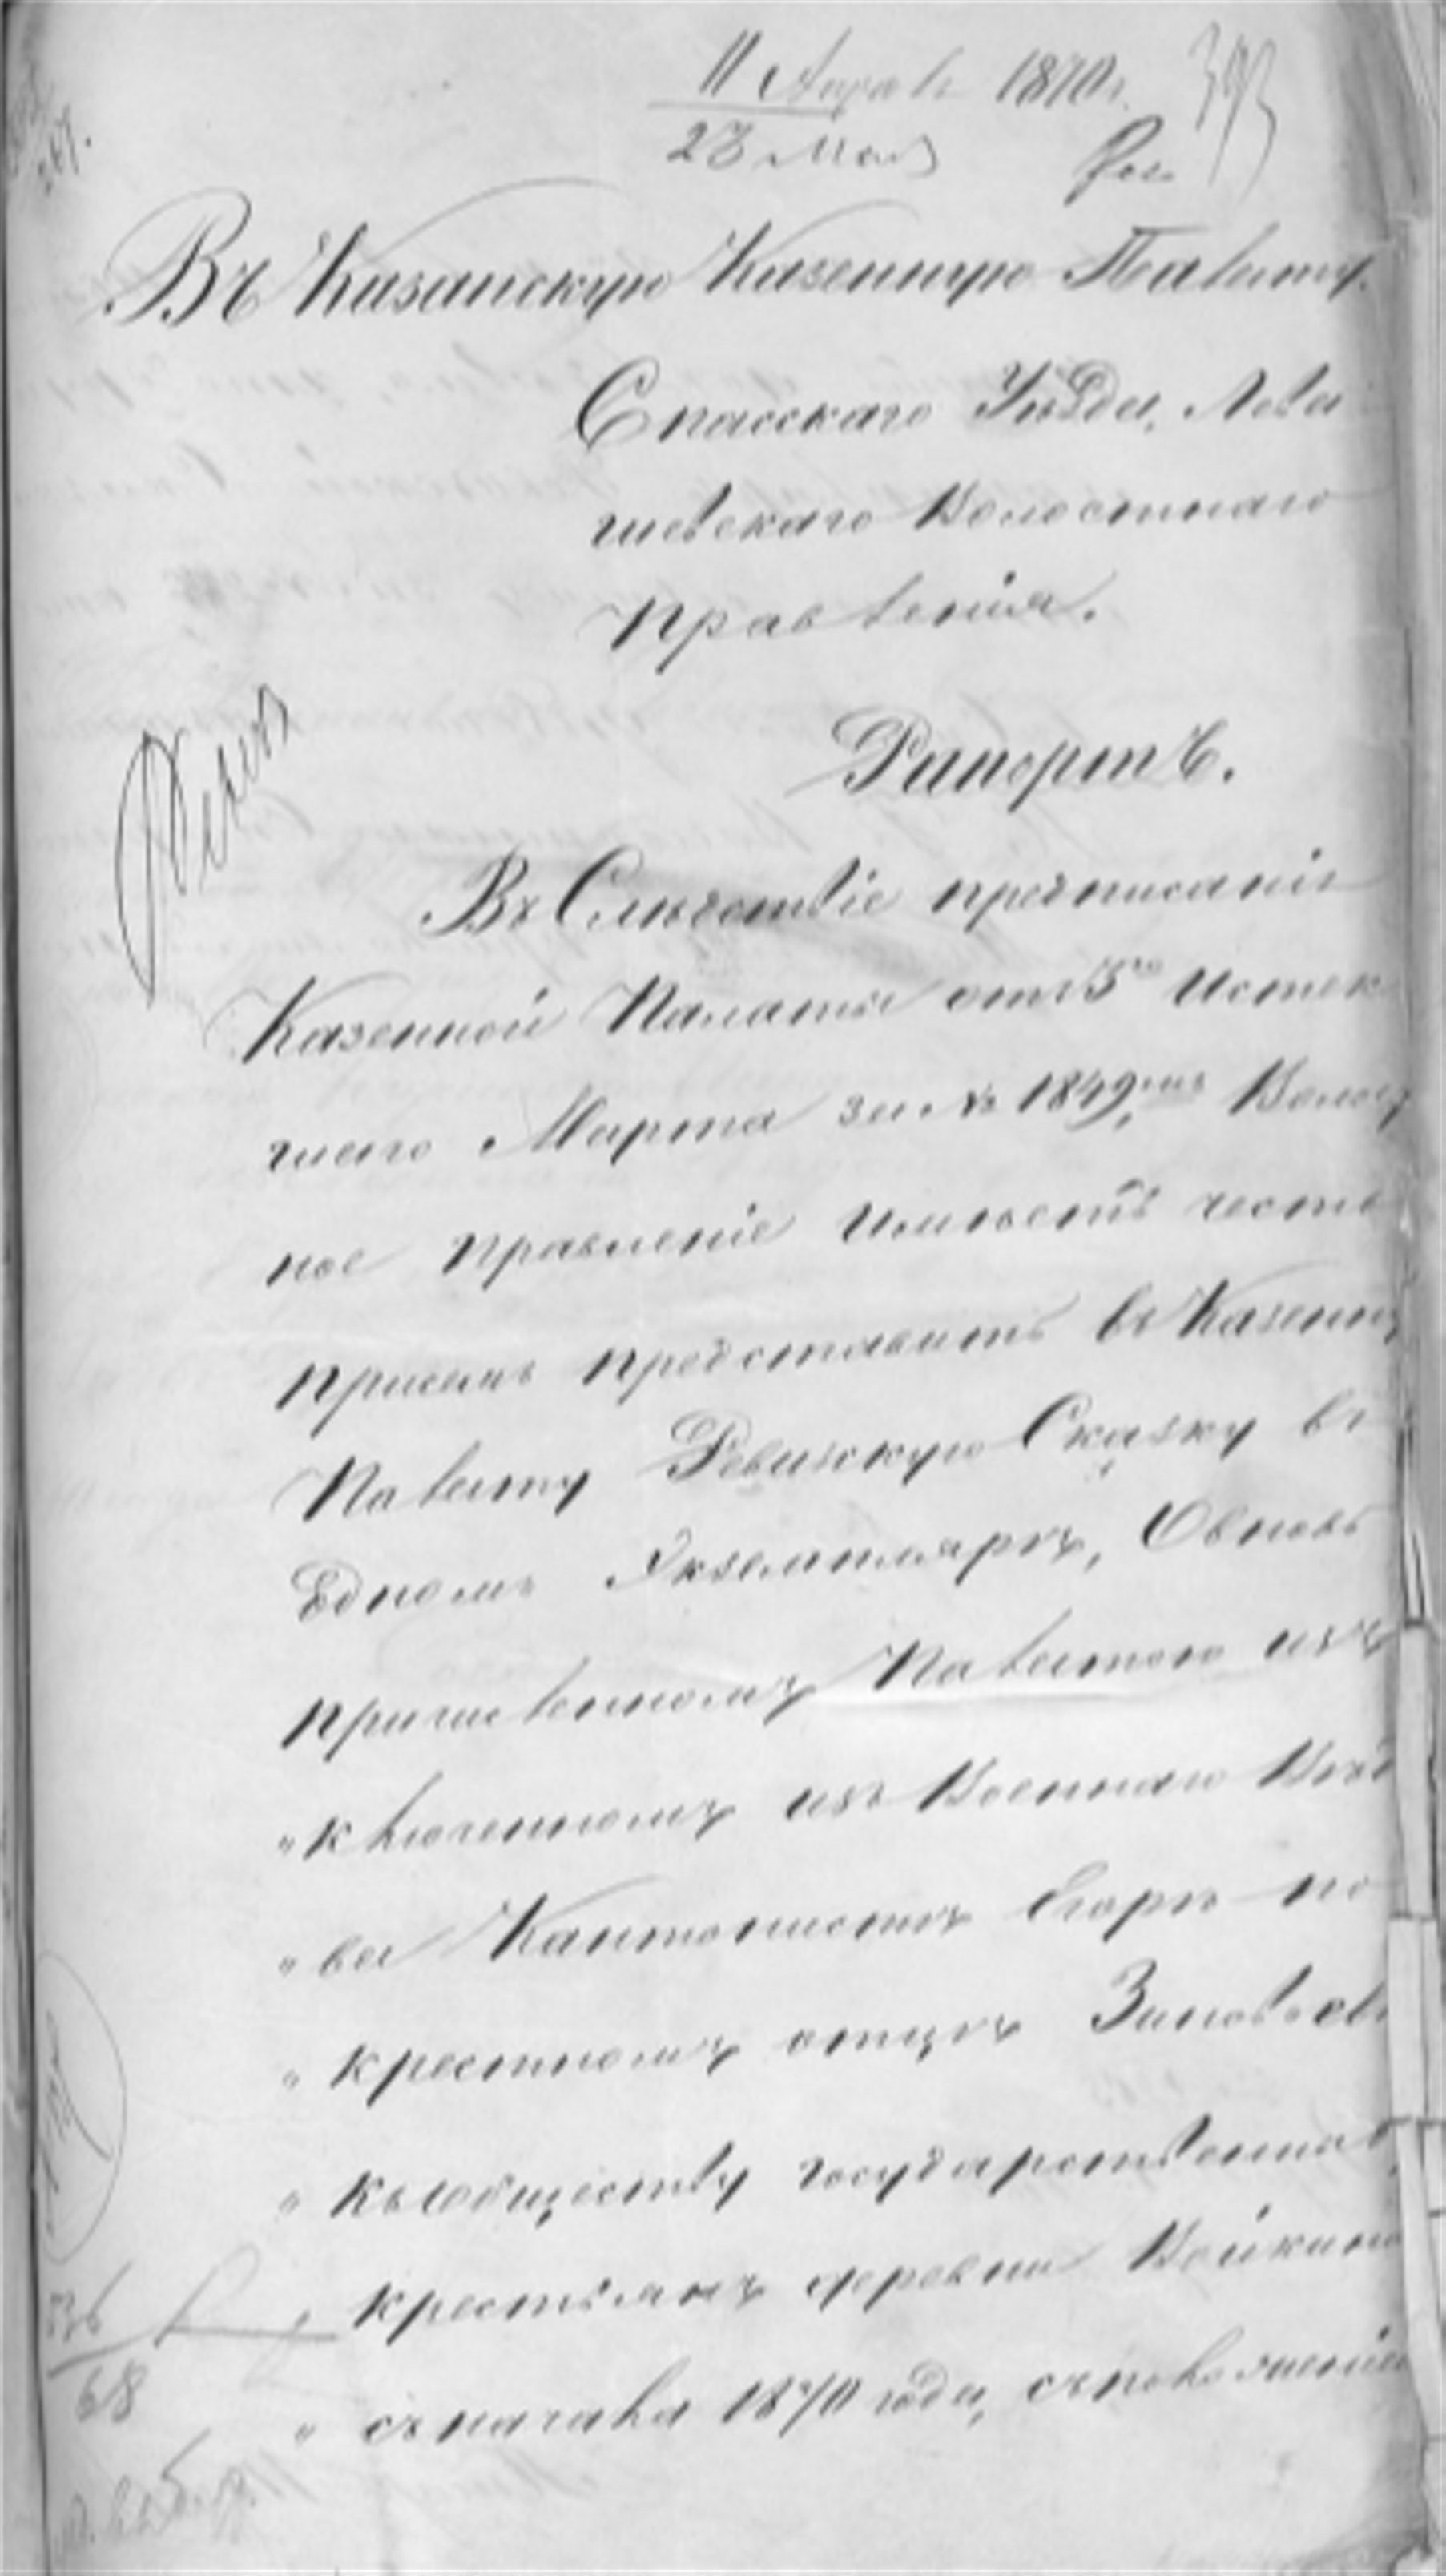 11 Апрѣля 1870 г.
23 Мая
393
Въ Казанскую Казенную Палату.
Спасскаго Уѣзда, Лева
шевскаго Волостнаго
Правленія.
Рапортъ.
Въ Слѣдствіе предписанія
Казенной Палаты отъ 5го Истек
шаго Марта за № 1849мъ Волос
ное правленіе имѣетъ честь
присемъ представить въ Казенну
Палату Ревизскую Сказку въ
Едномъ Экземплярѣ, Овновь
причисленномъ Палатою изъ
"ключенномъ изъ Военнаго Вѣд
"ва Кантонистѣ Егорѣ по
"крестномъ отцѣ Зиновьевѣ
"къ обществу государственны
"крестьянъ деревни Войкино
"съ начала 1870 года, съ положеніе
68